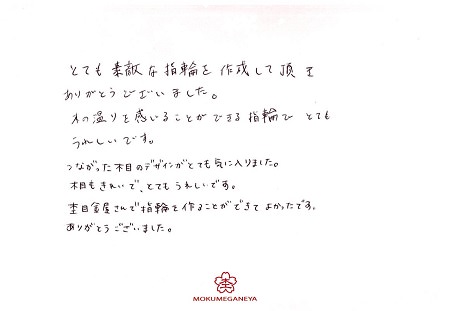 とても素敵な指輪を作成して頂き
ありがとうございました。
木の温りを感いることができる指輪で とても
うれしいです。
つながった木目のデザインがとても気に入りました。
木目もきれいで、とてもうれしいです。
杢目金屋さんで指輪を作ることができてよかったです。
ありがとうございました。
杢
MOKUMEGANEYA